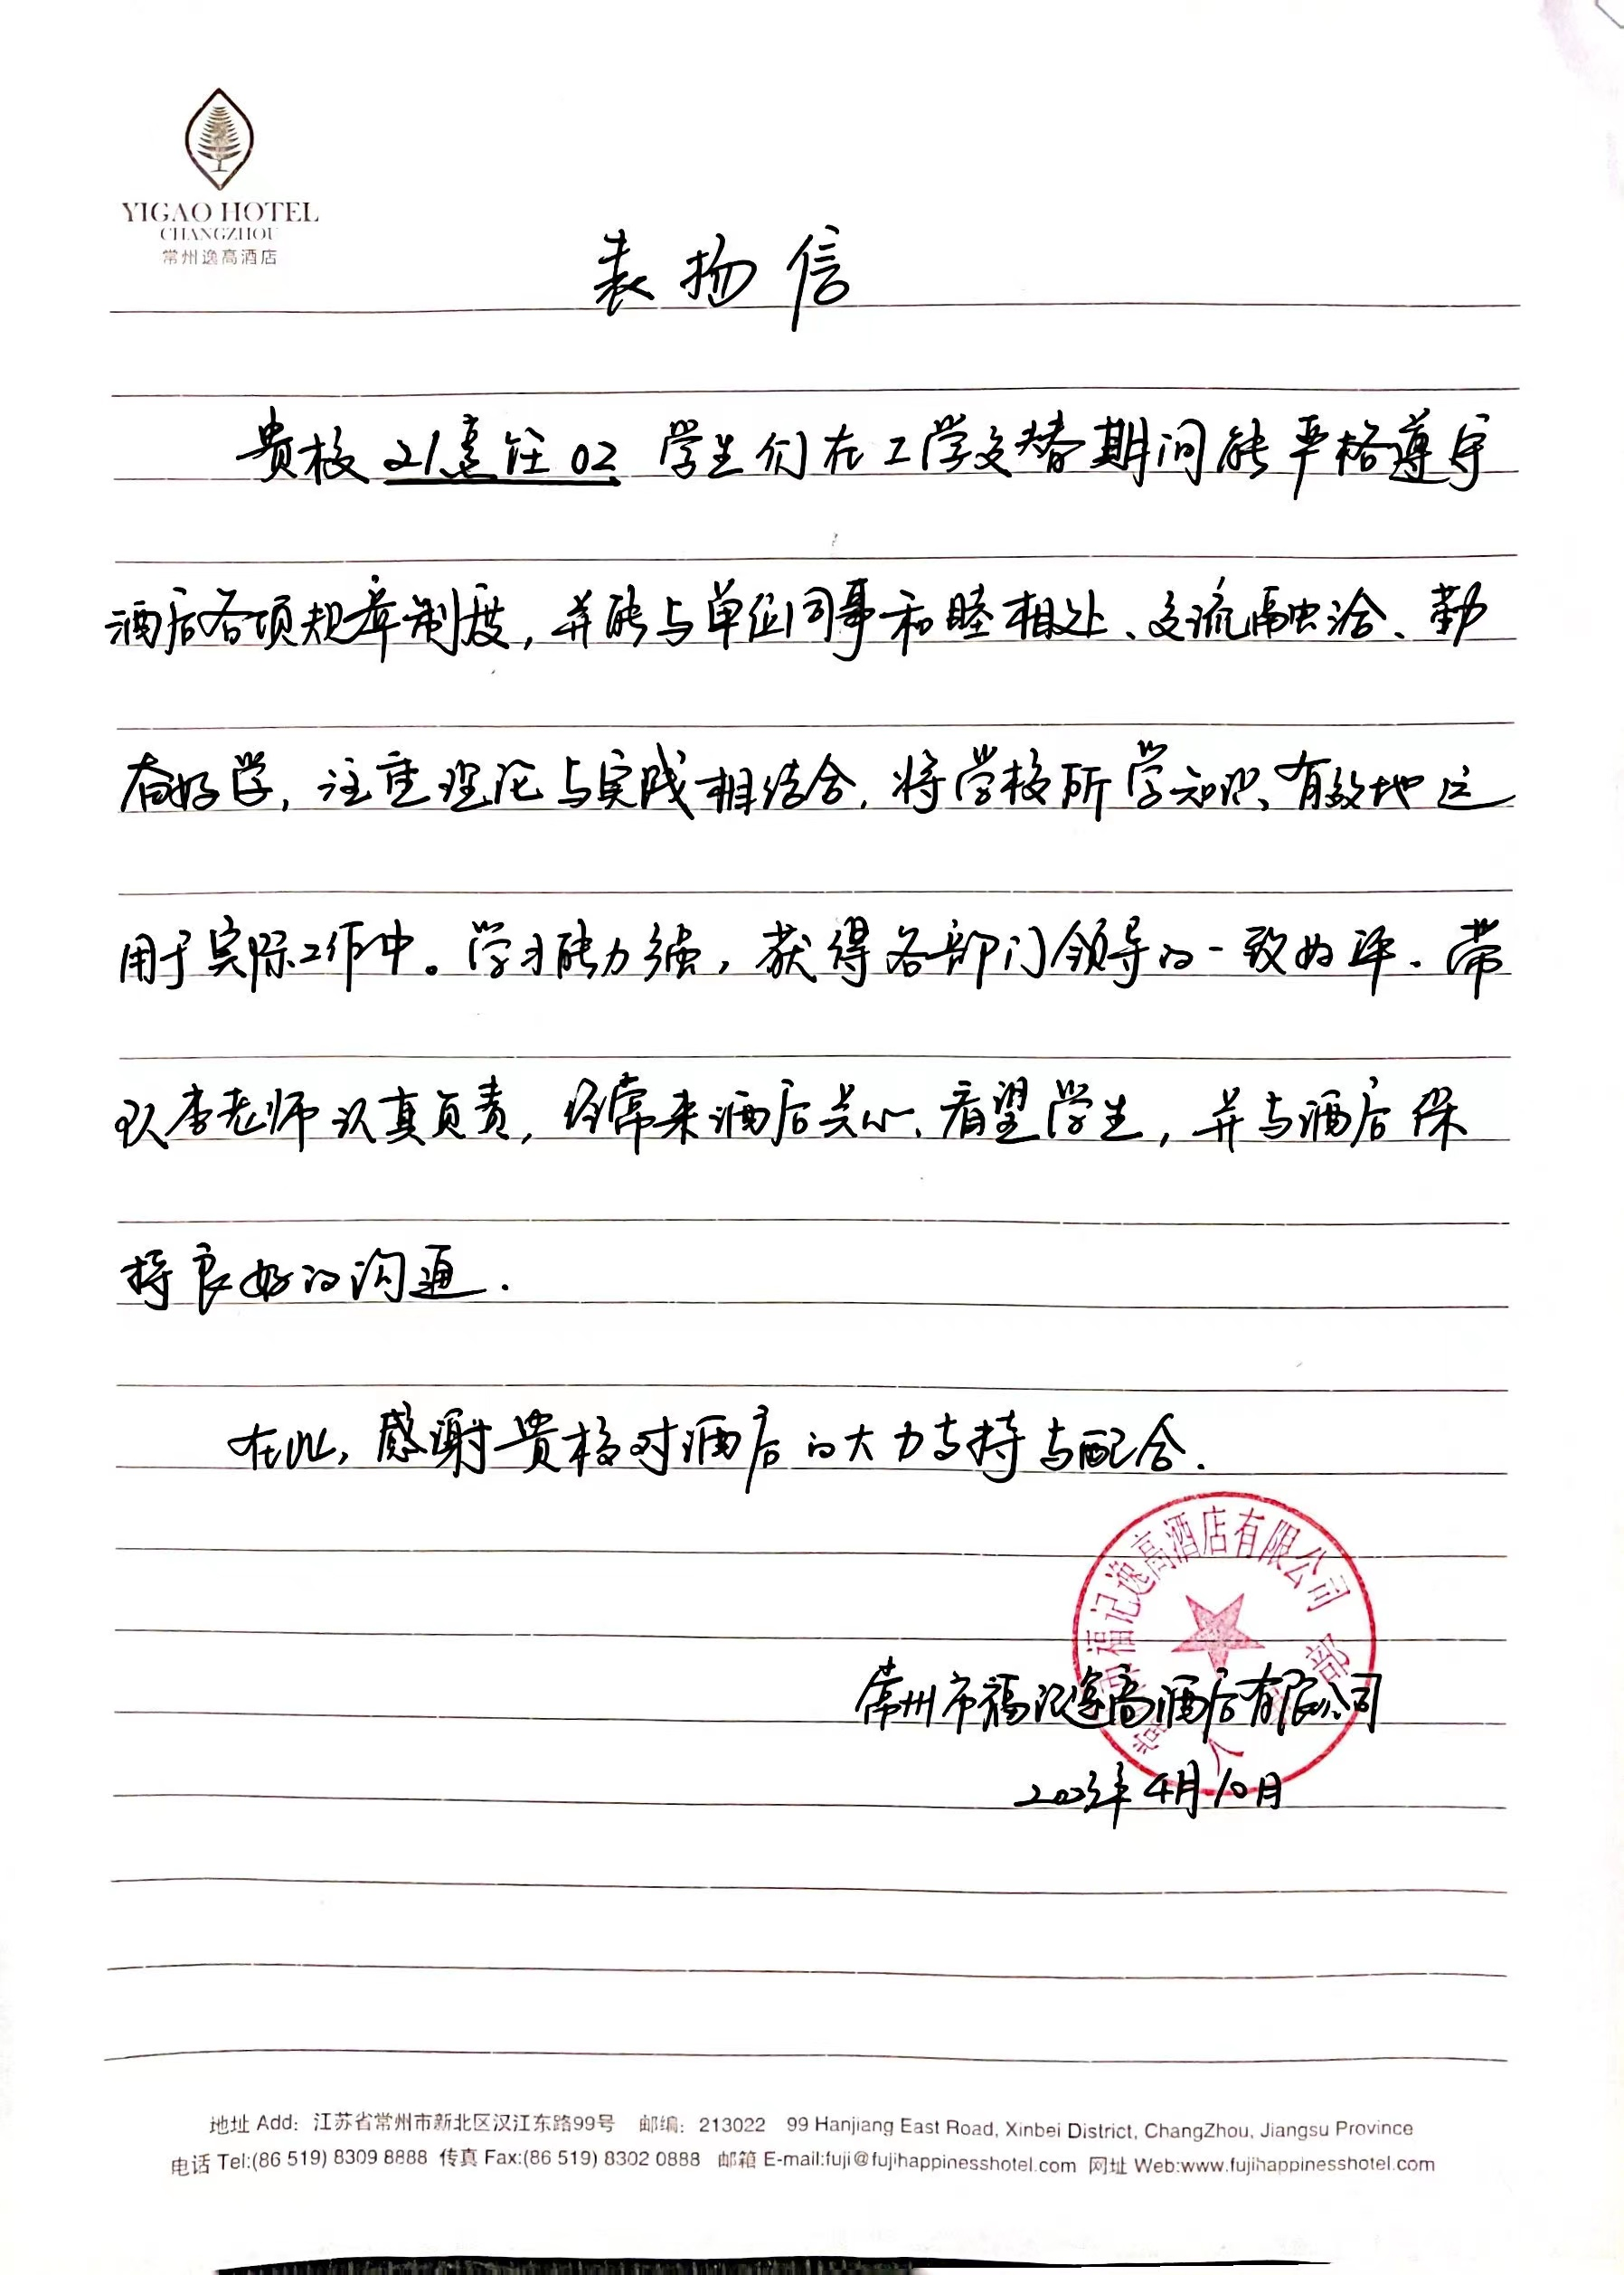 YIGAO HOTEL
CHANGZHOU
常州逸高酒店
表扬信
贵校 21烹饪02 学生们在工学交替期间能严格遵守
酒店各项规章制度,并能与单位同事和睦相处、交流融洽、勤
奋好学,注重理论与实践相结合,将学校所学知识、有效地运
用于实际工作中。学习能力强,获得各部门领导的一致好评.带
队李老师认真负责,经常来酒店关心、看望学生,并与酒店保
持良好的沟通.
在此,感谢贵校对酒店的大力支持与配合.
常州市福记逸高酒店有限公司
人事部
常州市福记逸高酒店有限公司
2023年4月10日
地址 Add: 江苏省常州市新北区汉江东路99号 邮编: 213022 99 Hanjiang East Road, Xinbei District, ChangZhou, Jiangsu Province
电话 Tel:(86 519) 8309 8888 传真 Fax:(86 519) 8302 0888 邮箱 E-mail:fuji@fujihappinesshotel.com 网址 Web:www.fujihappinesshotel.com